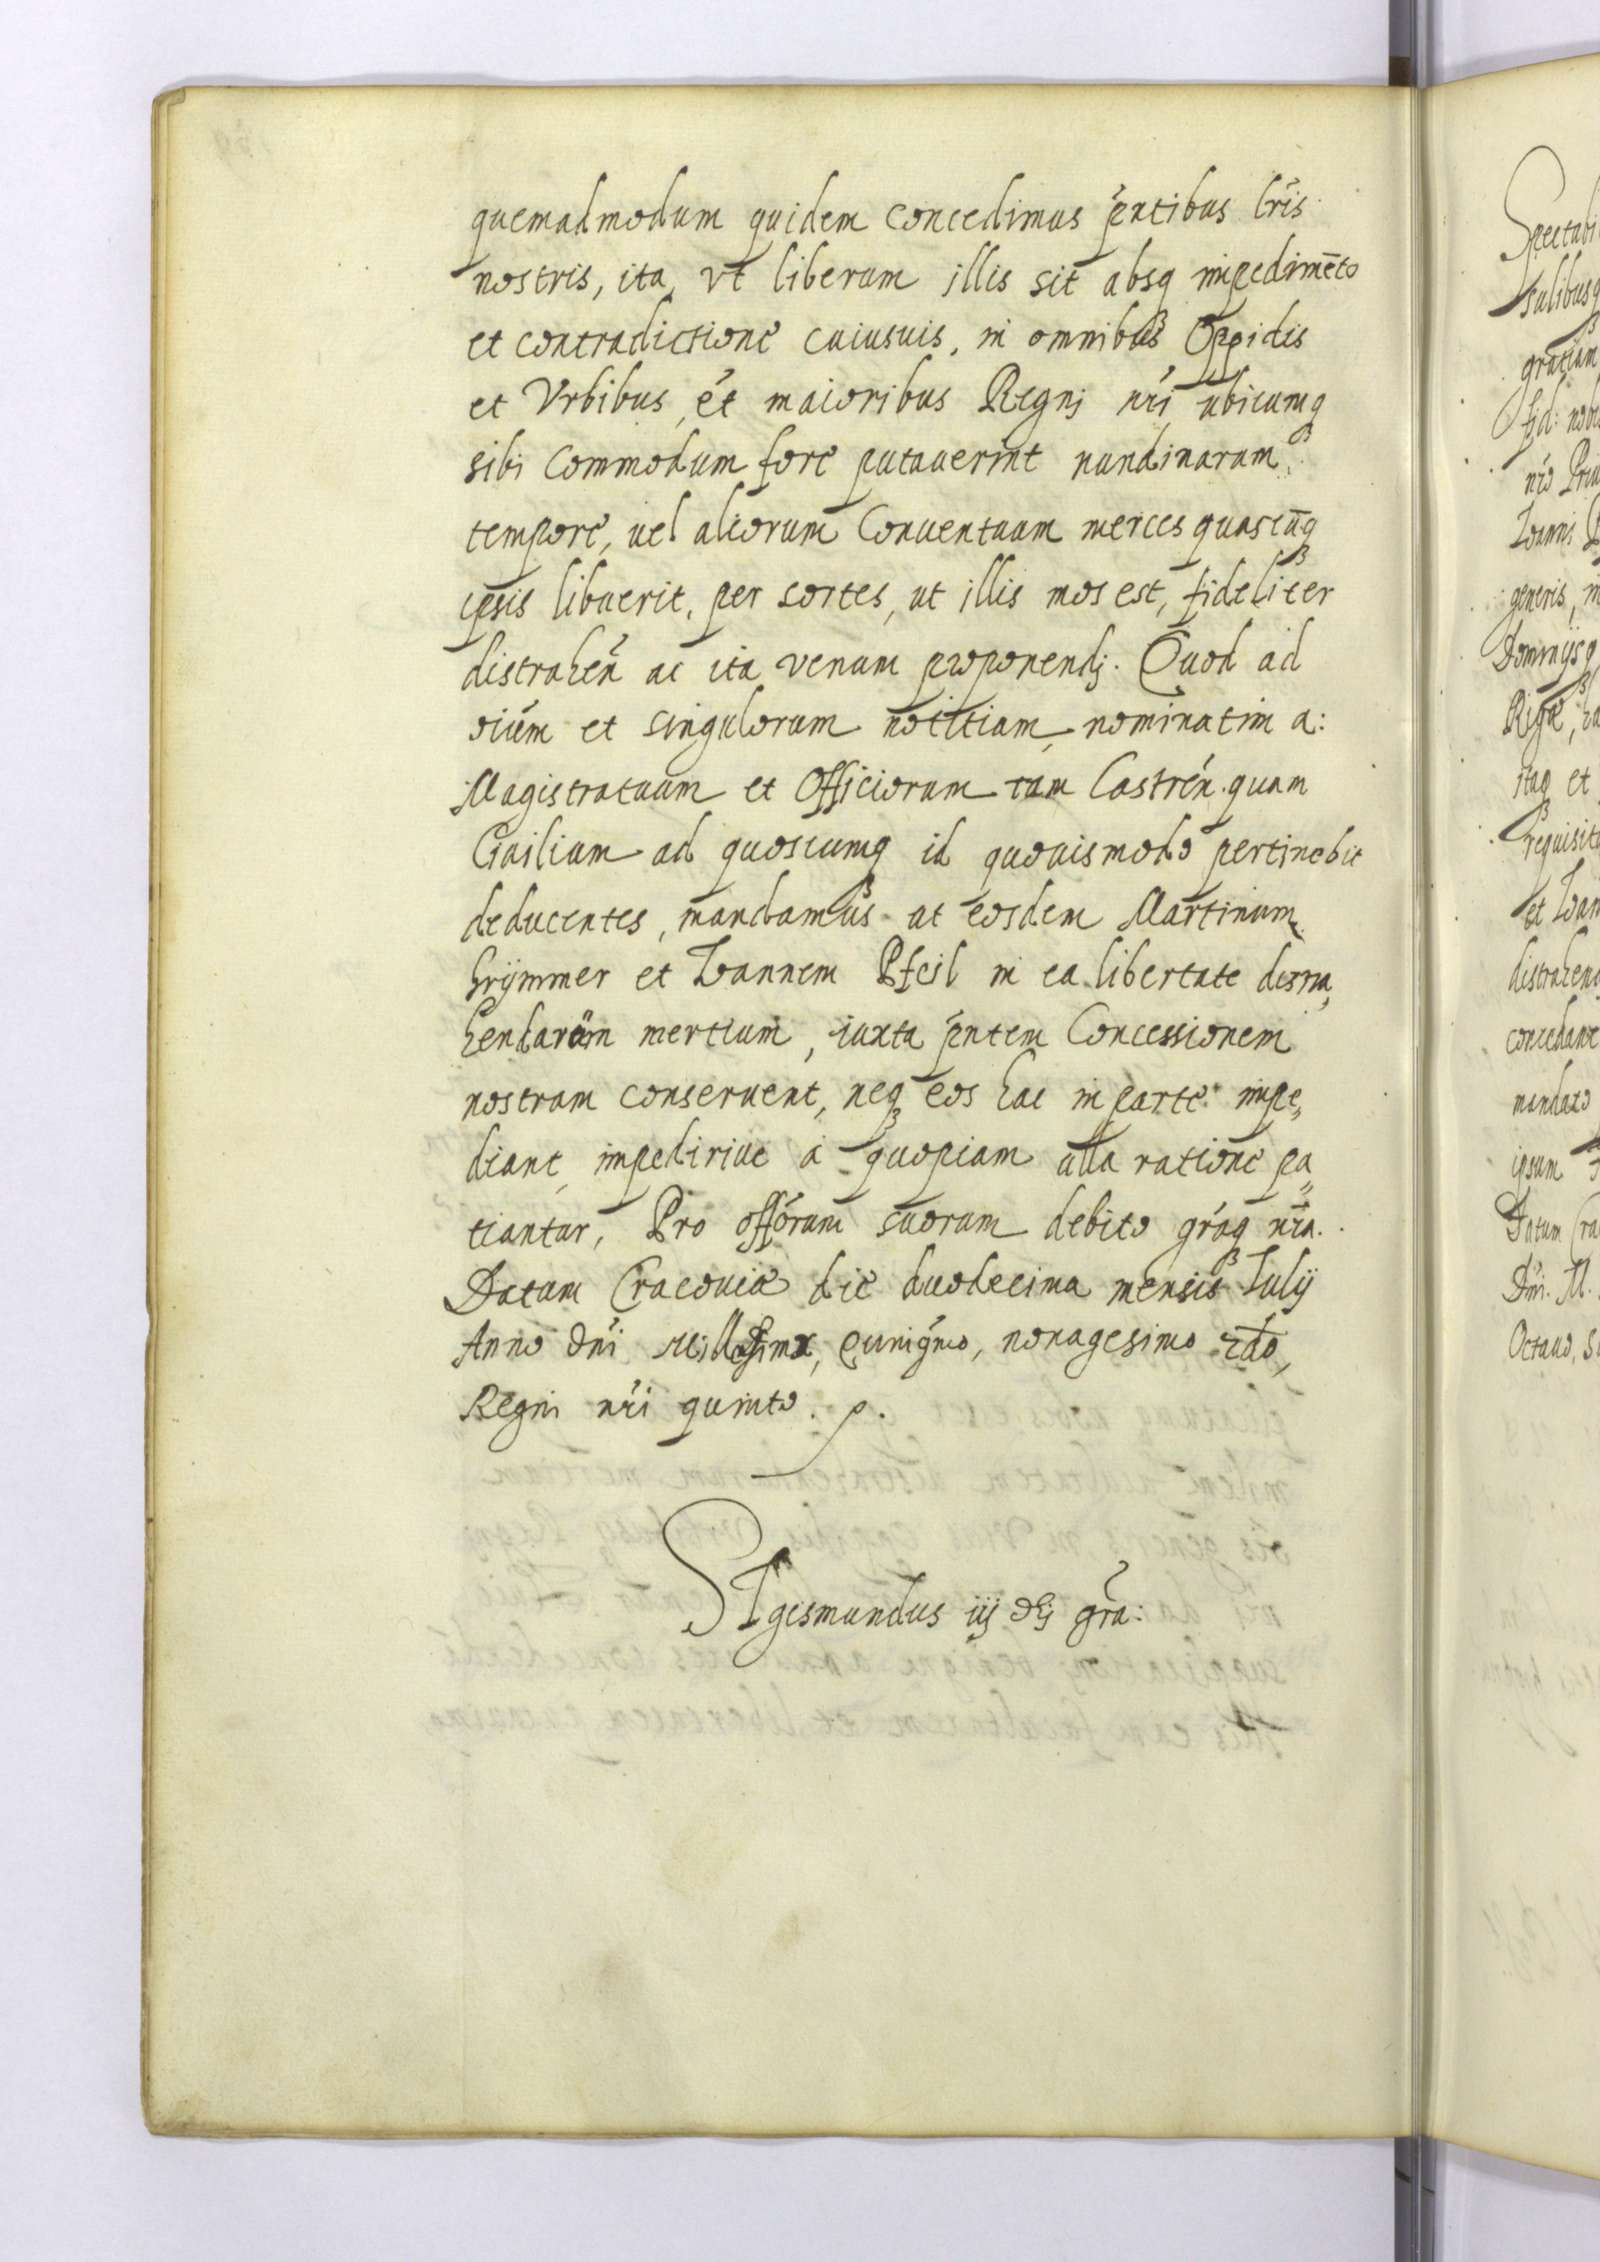 quemadmodum quidem concedimus pñtibus lr̃is
nostris, ita, vt liberum illis sit absq impedimēto
et contradictione cuiusuis, in omnibus Oppidis
et Vrbibus, et maioribus Regnj nr̃i ubicumq
sibi commodum fore putauerint nundinarum
tempore, uel aliorum Conuentuum merces quascūq
ipsis libuerit, per sortes, ut illis mos est, fideliter
distrahen̄ ac ita venum proponendj. Quod ad
oiũm et singulorum notitiam, nominatim a:
Magistratuum et Officiorum tam Castren̄. quam
Ciuilium ad quoscumq id quouismodo pertinebit
deducentes, mandamus ut eosdem Martinum
et Ioannem Pfeil in ea libertate distra,
hendarum mertium, iuxta pñtem Concessionem
nostram conseruent, neq eos hac in parte impe,,
diant, impediriue à quopiam ulla ratione pa,,
tiantur, Pro offõrum suorum debito gr̃aq nr̃a.
Datum Cracouiæ die duodecima mensis Iulij
Anno Dñi Millesimo, Quing̃mo, nonagesimo 2do,
Regni nr̃i quinto.
SIgismundus iij dej gr̃a:
Spectabi
gratiam
fid: nobis
Ioannis
generis, in
Dominijsq
itaq et
requisit
et Ioan
distrahen
concedant
mandato
ipsum
Datum Cra
Dñi. M.
Octauo, S